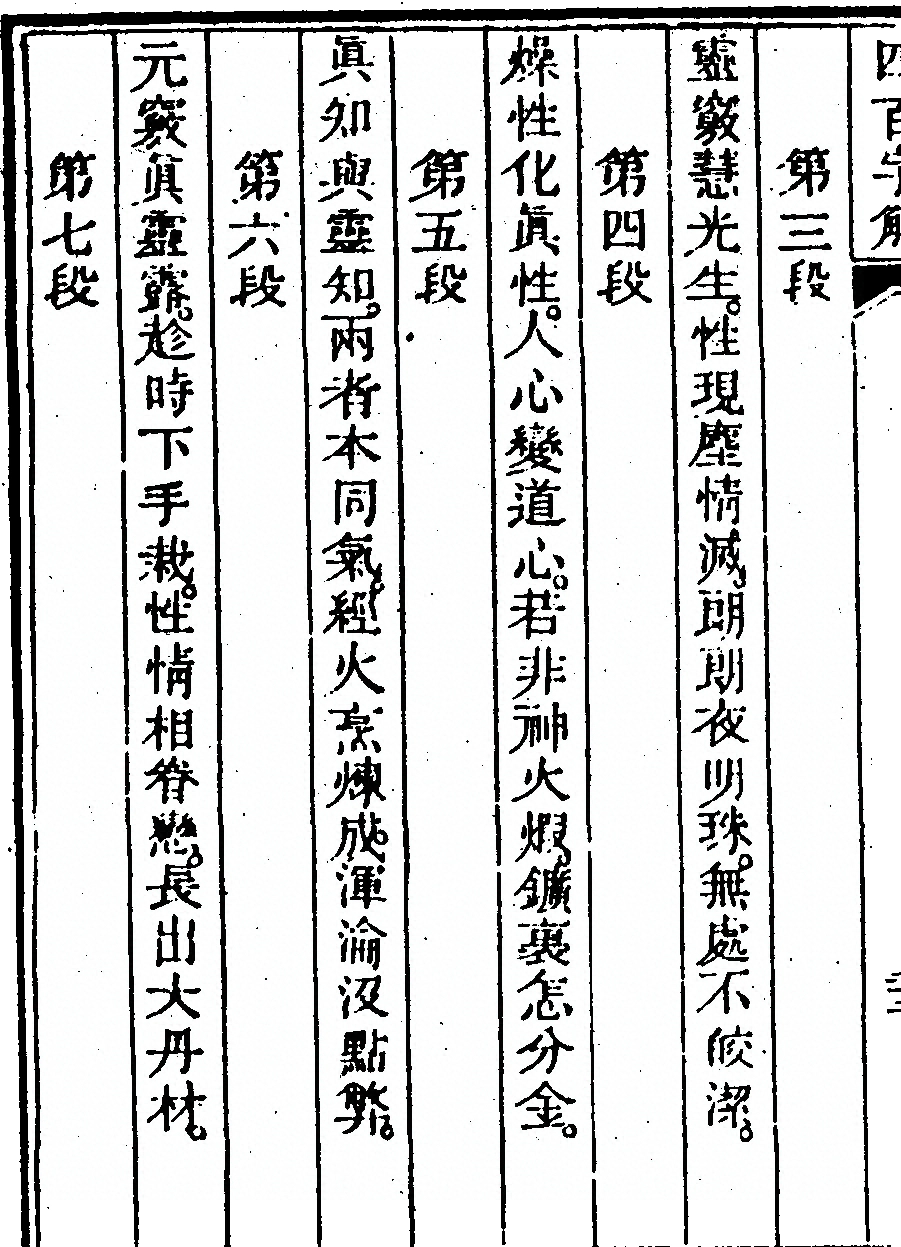 四百字解
第三段
靈竅慧光生。性現塵情滅。朗朗夜明珠。無處不皎潔。
第四段
燥性化眞性。人心變道心。若非神火煅。鑛裏怎分金。
第五段
眞知與靈知。兩者本同氣。經火烹煉成。渾淪沒點弊。
第六段
元竅眞靈露。趁時下手栽。性情相眷戀。長出大丹林。
第七段